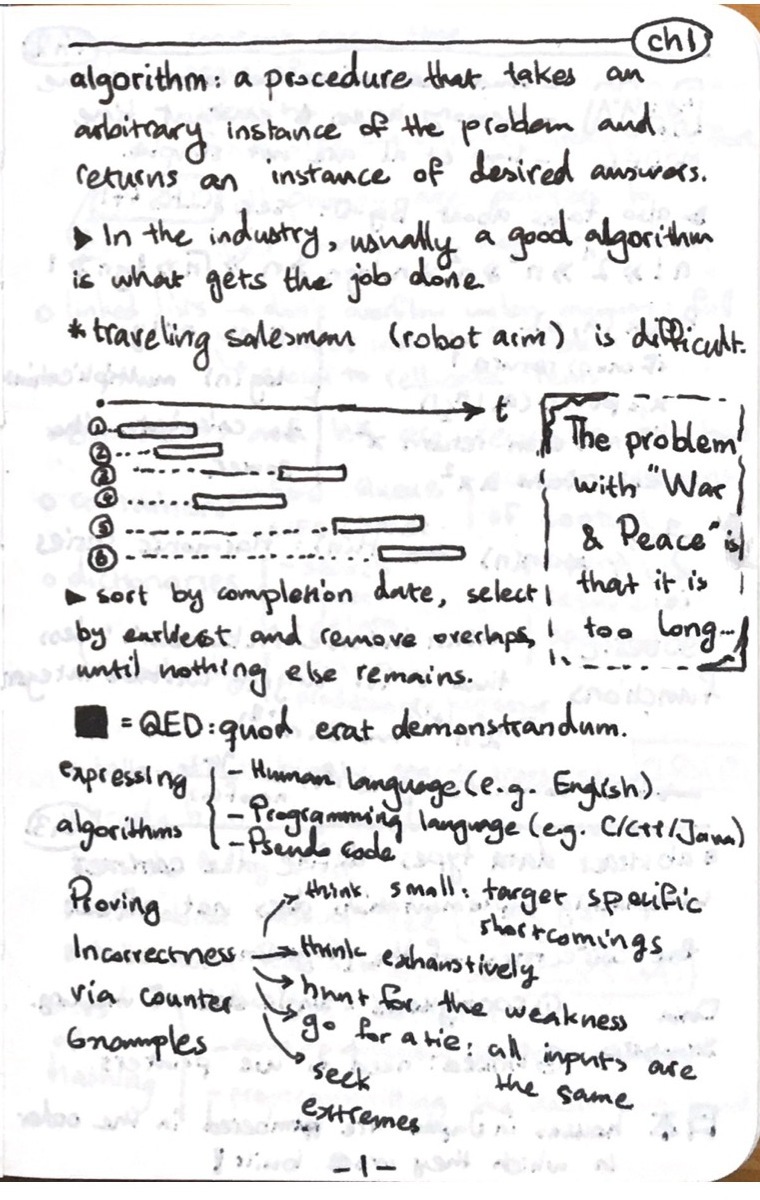 ch1
algorithm: a procedure that takes an
arbitrary instance of the problem and
returns an instance of desired answers.
▶ In the industry, usually a good algorithm
is what gets the job done
* traveling salesman (robot arm) is difficult.
t
1
2
3
4
5
6
The problem
with "War
& Peace" is
that it is
too long...
▶ sort by completion date, select
by earliest and remove overlaps,
until nothing else remains.
■ = QED: quod erat demonstrandum.
expressing
algorithms
- Human language (e.g. English)
- Programming language (e.g. C/C++/Java)
- Pseudo code
Proving
Incorrectness
via counter
Examples
think small: target specific
shortcomings
think exhaustively
hunt for the weakness
go for a tie: all inputs are
the same
seek
extremes
-1-